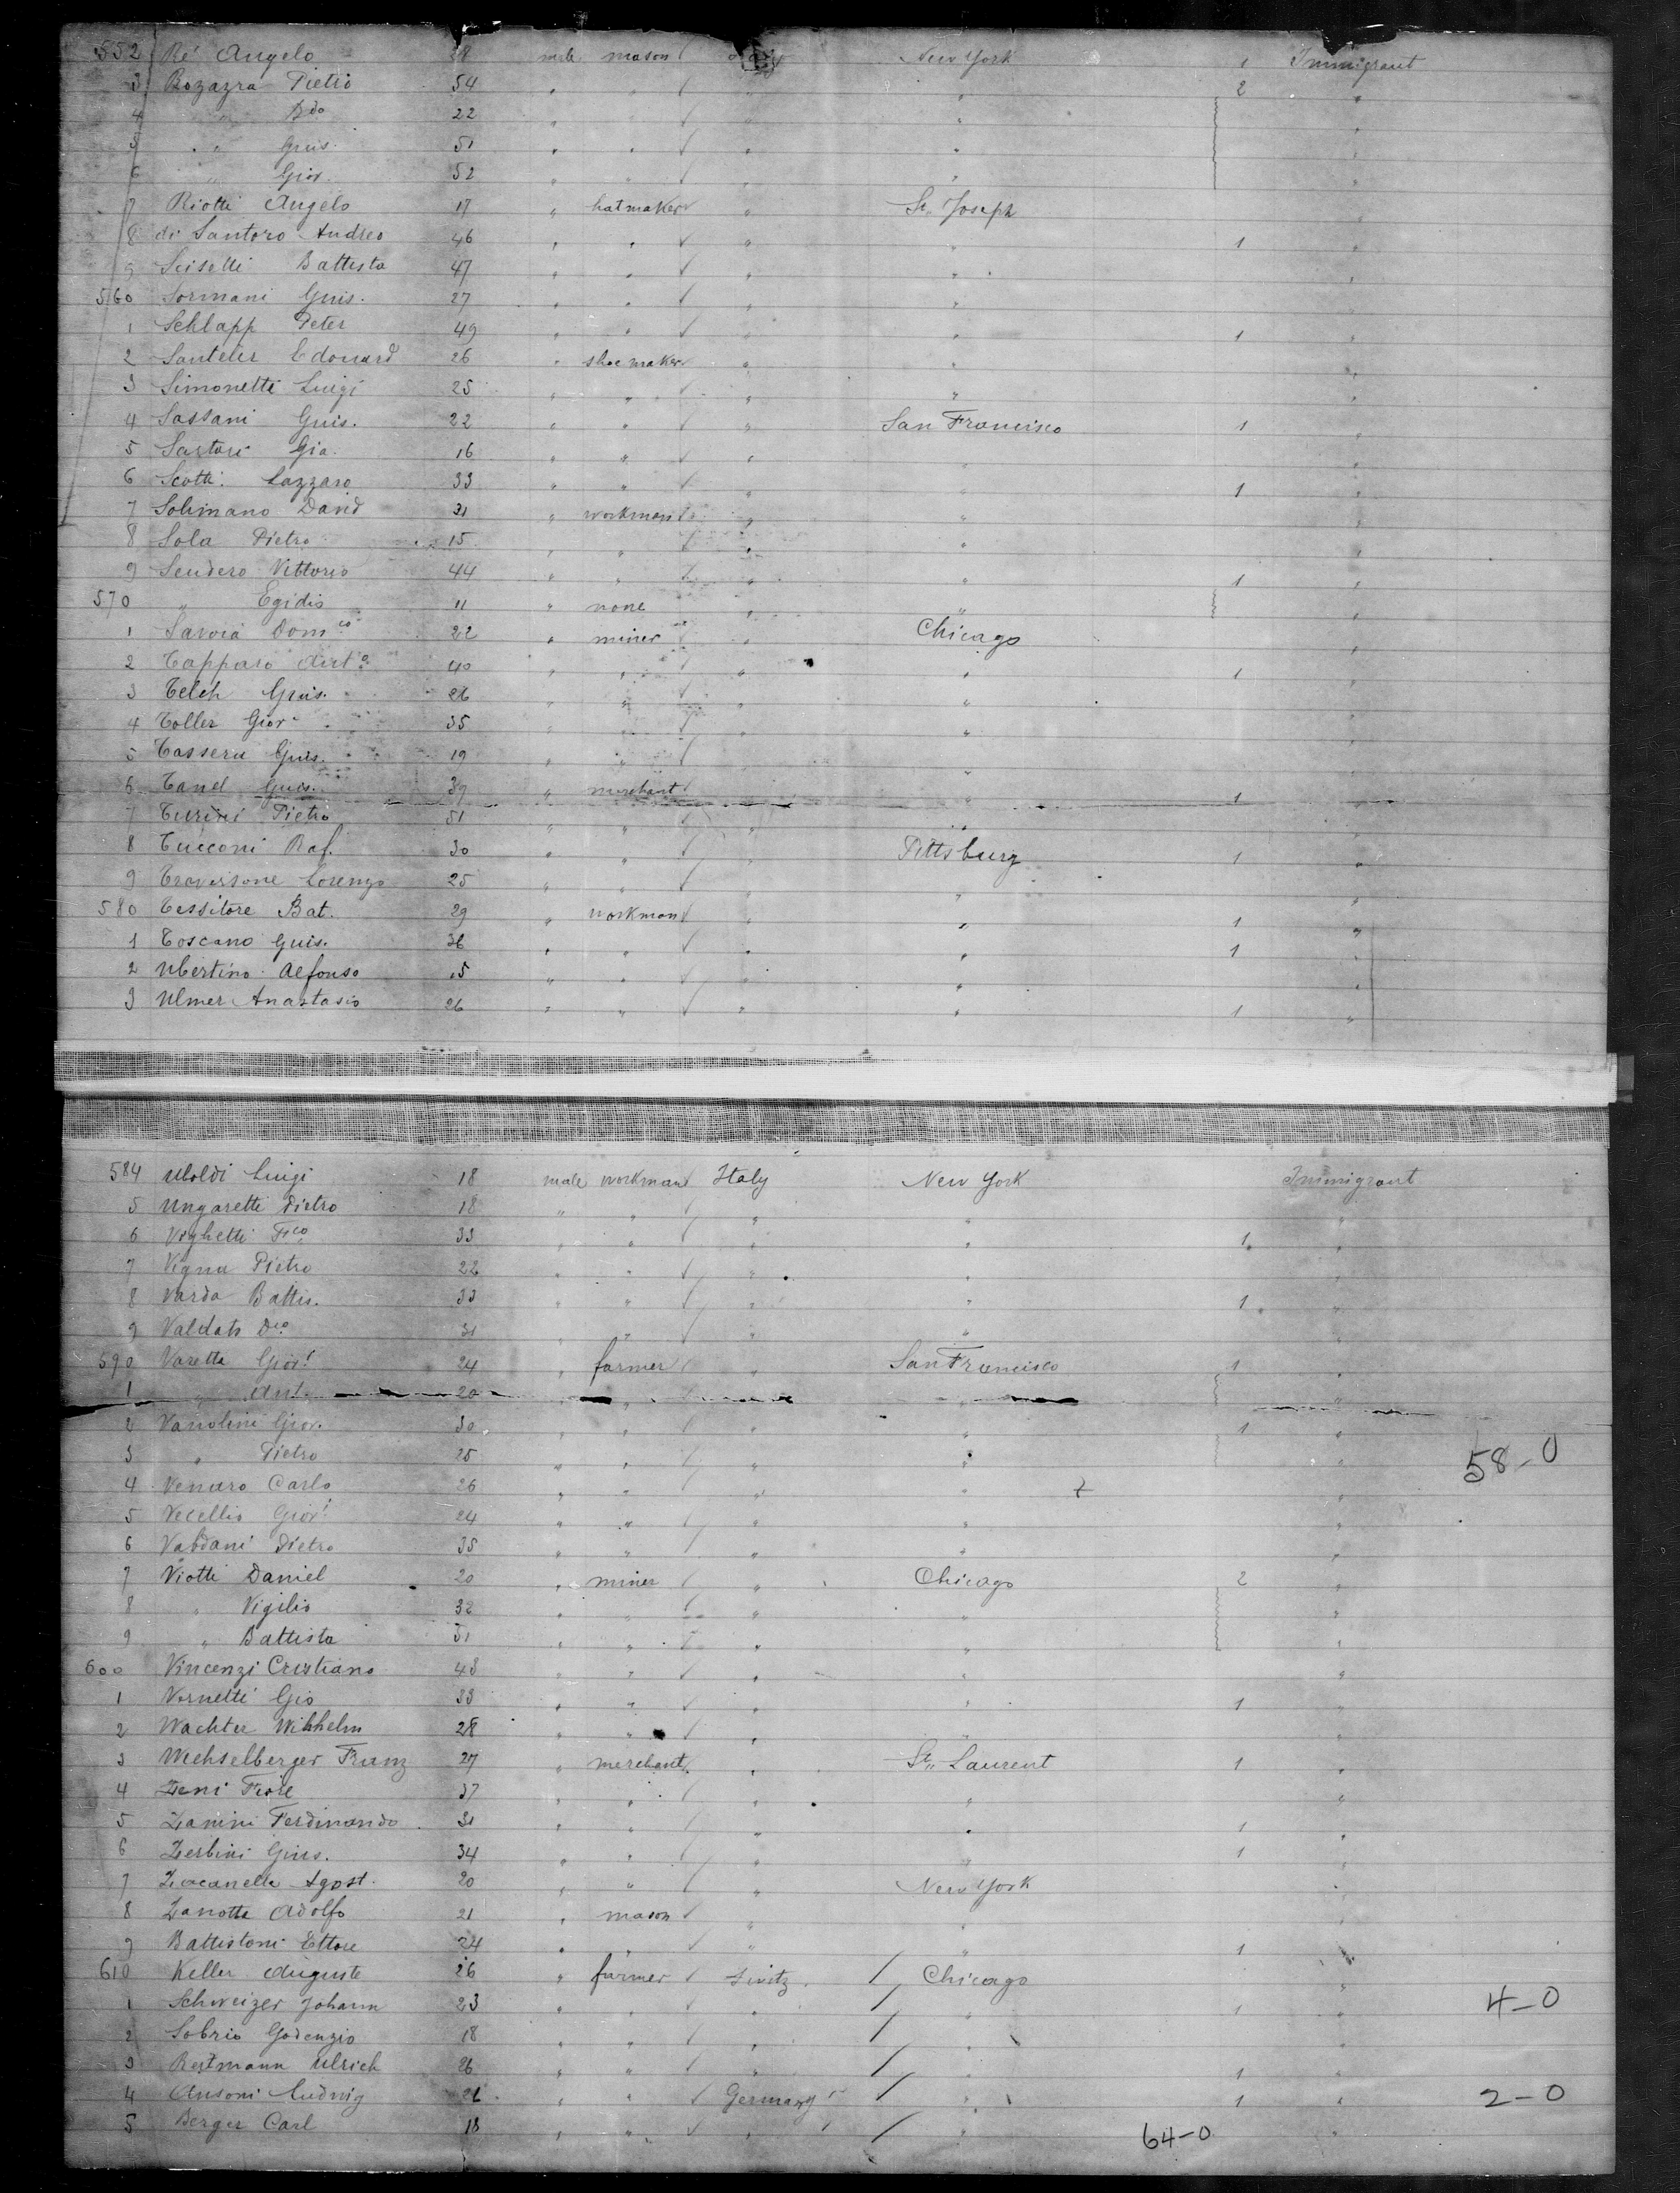 552 Ré Angelo 28 male mason New York 1 Immigrant
3 Rozazra Pietro 54 " " " " 2 "
4 " Bdo 22 " " " " "
5 " Guis. 51 " " " " "
6 " Giov. 52 " " " " "
7 Riotti Angelo 17 " hatmaker " St. Joseph "
8 di Santoro Andreo 46 " " " " 1 "
9 Sciselli Battista 47 " " " " "
560 Sormani Guis. 27 " " " " "
1 Schlapp Peter 49 " " " " 1 "
2 Santeler Edouard 26 " shoemaker " " "
3 Simonetti Luigi 25 " " " " "
4 Sassani Guis. 22 " " " San Francisco 1 "
5 Sartori Gio. 16 " " " " "
6 Scotti Lazzaro 33 " " " " 1 "
7 Solimano David 31 " workman " " "
8 Sola Pietro 15 " " " " "
9 Sendero Vittorio 44 " " " " 1 "
570 " Egidio 11 " none " " "
1 Savoia Domco 22 " miner " Chicago "
2 Tapparo Anto 40 " " " " 1 "
3 Telch Guis. 26 " " " " "
4 Toller Giov. 35 " " " " "
5 Tassera Guis. 19 " " " " "
6 Tanel Guis. 39 " merchant " " 1 "
7 Turini Pietro 51 " " " " "
8 Tucconi Raf. 30 " " " Pittsburg 1 "
9 Traversone Lorenzo 25 " " " " "
580 Tessitore Bat. 29 " workman " " 1 "
1 Toscano Guis. 36 " " " " 1 "
2 Ubertino Alfonso 15 " " " " "
3 Ulmer Anastasio 26 " " " " 1 "
584 Uboldi Luigi 18 male workman Italy New York Immigrant
5 Ungaretti Pietro 18 " " " " "
6 Vighetti Fco 33 " " " " 1 "
7 Vigna Pietro 22 " " " " "
8 Varda Battis. 33 " " " " 1 "
9 Valdato Dco 31 " " " " "
590 Varetta Giov. 24 " farmer " San Francisco 1 "
1 " Ant. 20 " " " " "
2 Vanolini Giov. 30 " " " " 1 "
3 " Pietro 25 " " " " " 58-0
4 Venaro Carlo 26 " " " " "
5 Vecellio Giov. 24 " " " " "
6 Vabdani Pietro 35 " " " " "
7 Viotti Daniel 20 " miner " Chicago 2 "
8 " Vigilio 32 " " " " "
9 " Battista 51 " " " " "
600 Vincenzi Cristiano 43 " " " " "
1 Vernetti Gio 33 " " " " 1 "
2 Wachter Wilhelm 28 " " " " "
3 Wechselberger Franz 27 " merchant " St. Laurent 1 "
4 Zeni Fiore 37 " " " " "
5 Zanini Ferdinando 31 " " " " 1 "
6 Zerbini Gius. 34 " " " " 1 "
7 Zacanella Agost. 20 " " " New York "
8 Zanotta Adolfo 21 " mason " " "
9 Battistoni Ettore 24 " " " " 1 "
610 Keller Auguste 26 " farmer Switz. Chicago "
1 Schweizer Johann 23 " " " " 1 " 4-0
2 Sobrio Godenzio 18 " " " " "
3 Restmann Ulrich 26 " " " " 1 "
4 Ansoni Ludwig 21 " " Germany " 1 " 2-0
5 Berger Carl 18 " " " " "
64-0